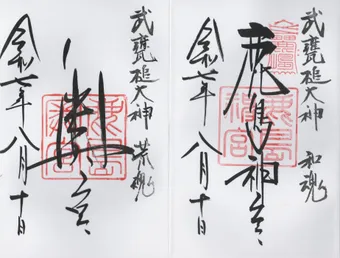 武甕槌大神 和魂
鹿島神宮
令和七年 八月十日
武甕槌大神 荒魂
令和七年 八月十日